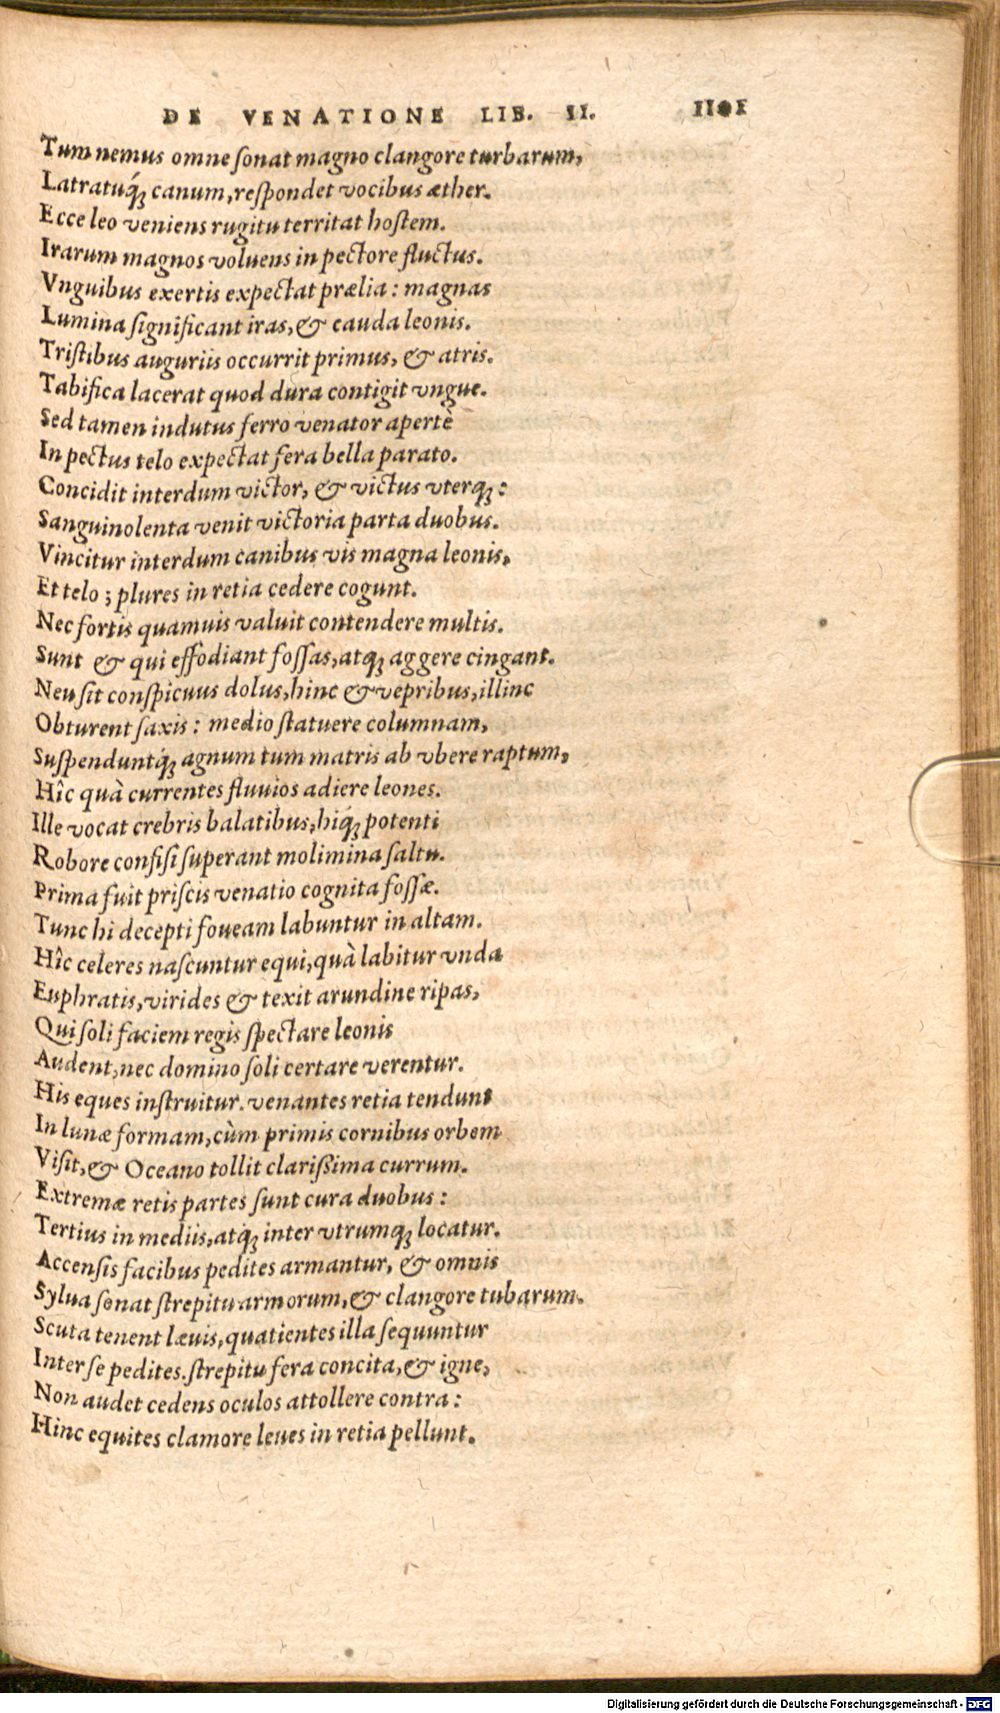 DE VENATIONE LIB. II.
Tum nemus omne ſonat magno clangore turbarum,
Latratuq́ꝫ canum, reſpondet vocibus æther.
Ecce leo veniens rugitu territat hoſtem.
Irarum magnos voluens in pectore fluctus.
Vnguibus exertis expectat prælia: magnas
Lumina ſignificant iras, & cauda leonis.
Triſtibus auguriis occurrit primus, & atris.
Tabifica lacerat quod dura contigit vngue.
Sed tamen indutus ferro venator apertè
In pectus telo expectat fera bella parato.
Concidit interdum victor, & victus vterqꝫ:
Sanguinolenta venit victoria parta duobus.
Vincitur interdum canibus vis magna leonis,
Et telo; plures in retia cedere cogunt.
Nec fortis quamuis valuit contendere multis.
Sunt & qui effodiant foſſas, atqꝫ aggere cingant.
Neu ſit conſpicuus dolus, hinc & vepribus, illinc
Obturent ſaxis: medio ſtatuere columnam,
Suſpenduntq́ꝫ agnum tum matris ab vbere raptum,
Hîc quà currentes fluvios adiere leones.
Ille vocat crebris balatibus, hiq́ꝫ potenti
Robore confiſi ſuperant molimina ſaltu.
Prima fuit priſcis venatio cognita foſſæ.
Tunc hi decepti foueam labuntur in altam.
Hîc celeres naſcuntur equi, quà labitur vnda
Euphratis, virides & texit arundine ripas,
Qui ſoli faciem regis ſpectare leonis
Audent, nec domino ſoli certare verentur.
His eques inſtruitur. venantes retia tendunt
In lunæ formam, cùm primis cornibus orbem
Viſit, & Oceano tollit clariſsima currum.
Extremæ retis partes ſunt cura duobus:
Tertius in mediis, atqꝫ inter vtrumqꝫ locatur.
Accenſis facibus pedites armantur, & omnis
Sylua ſonat ſtrepitu armorum, & clangore tubarum.
Scuta tenent lævis, quatientes illa ſequuntur
Inter ſe pedites. ſtrepitu fera concita, & igne,
Non audet cedens oculos attollere contra:
Hinc equites clamore leues in retia pellunt.
Digitalisierung gefördert durch die Deutsche Forschungsgemeinschaft - DFG